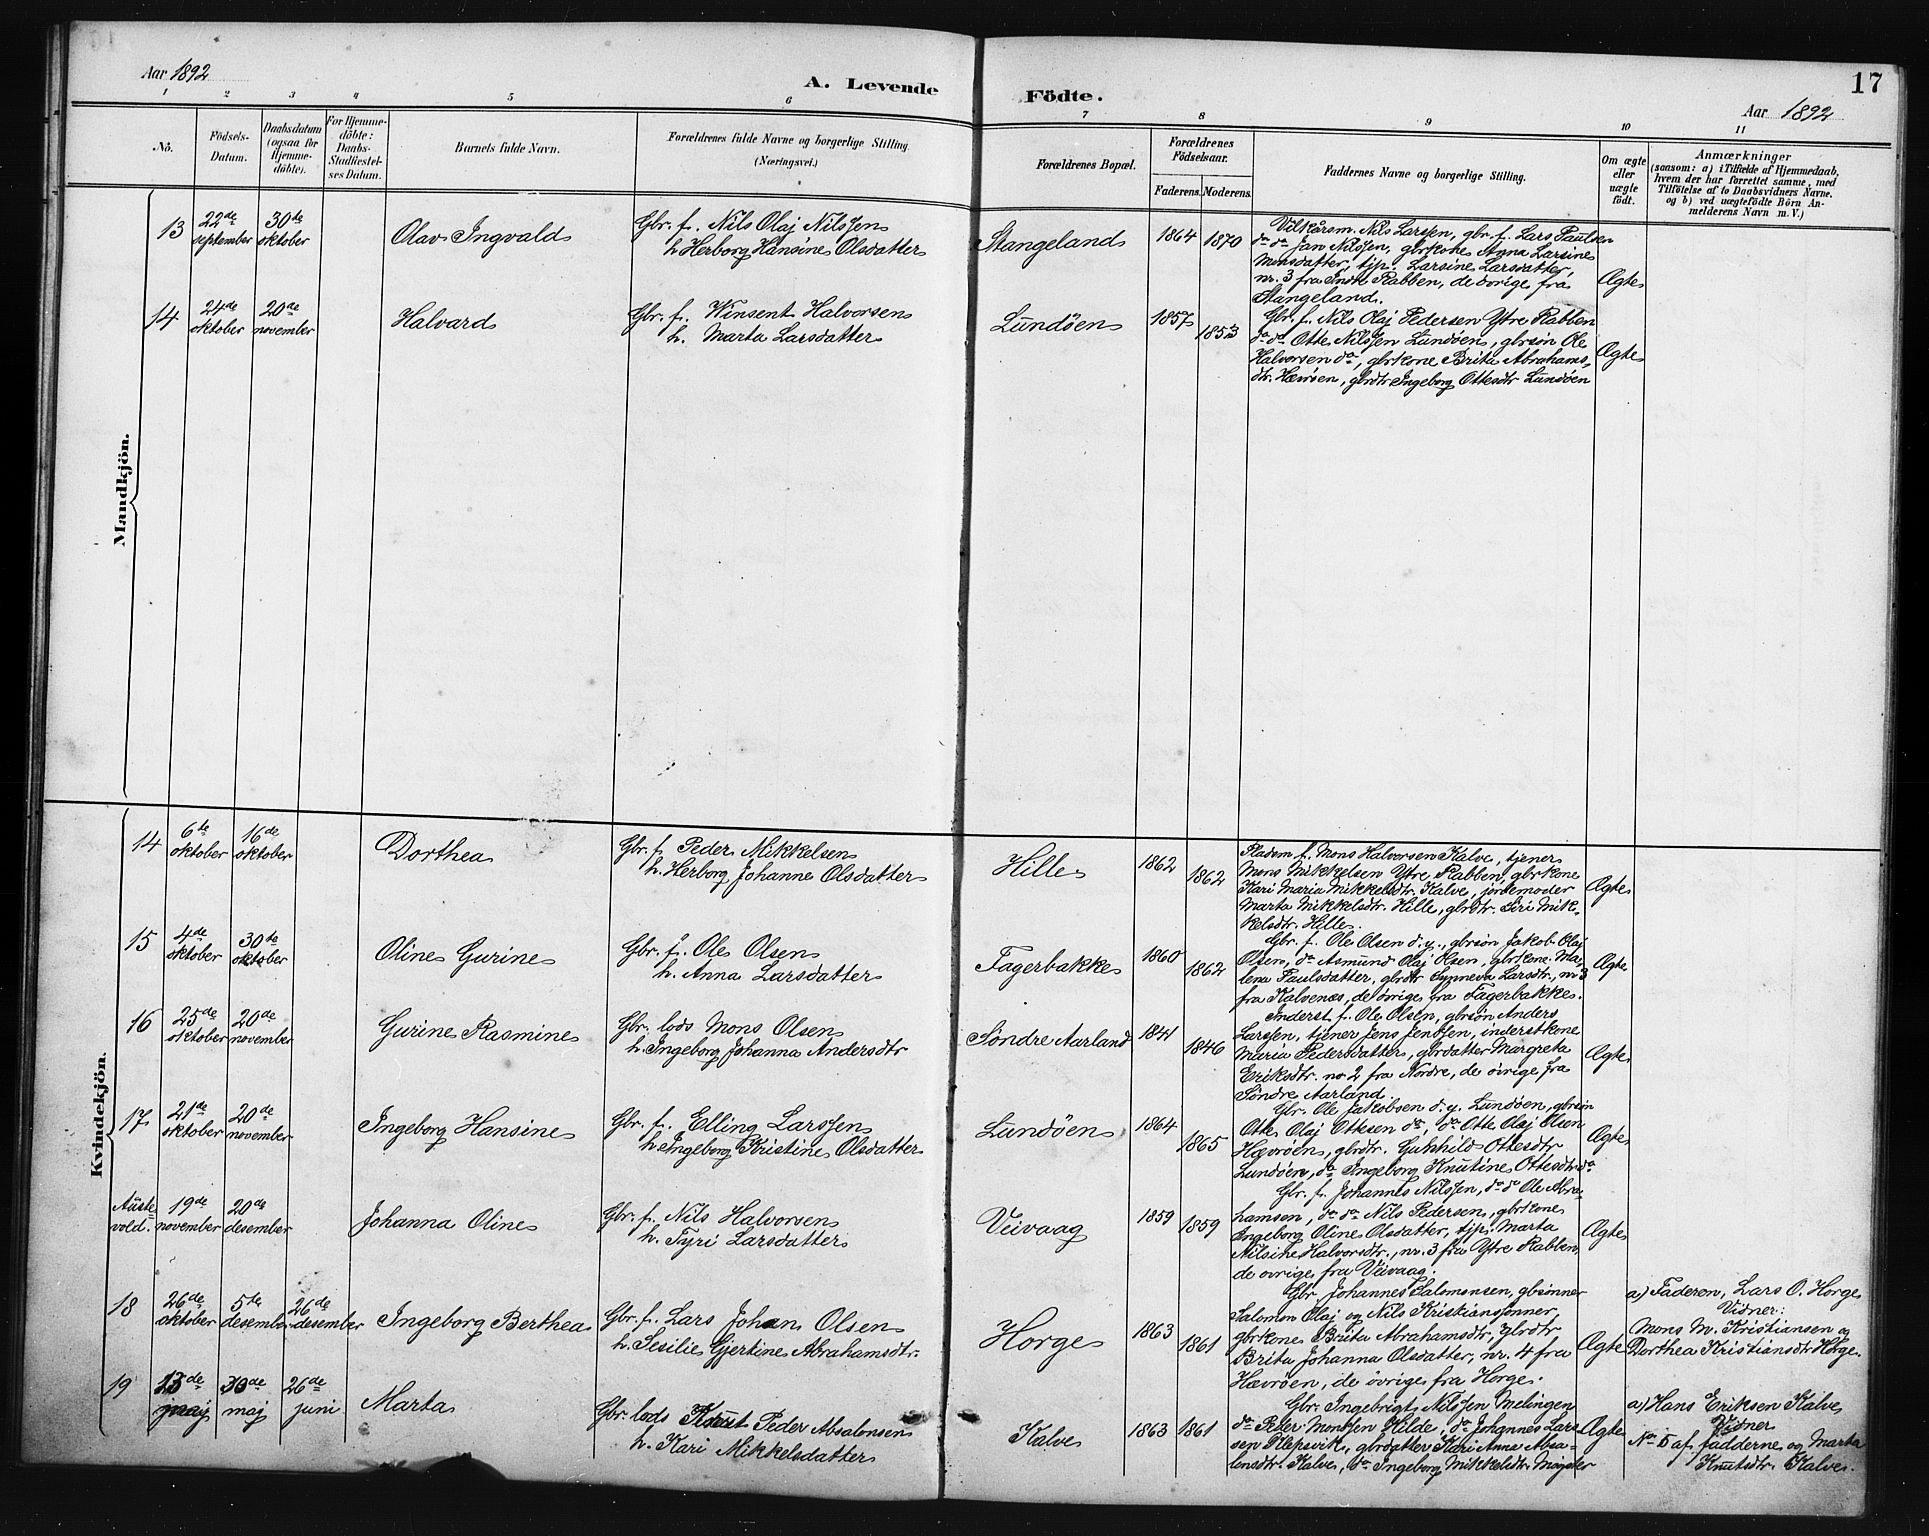 Aar 1892
A. Levende
Födte.
17
Aar 1892
1 2 3 4 5 6 7 8 9 10 11
No.
Födsels-
Datum.
Daabsdatum
(ogsaa for
Hjemme-
döbte).
For Hjemme-
döbte:
Daabs-
Stadfæstel-
ses Datum.
Barnets fulde Navn.
Forældrenes fulde Navne og borgerlige Stilling.
(Næringsvei.)
Forældrenes Bopæl.
Forældrenes
Födselsaar.
Faderens. Moderens.
Faddernes Navne og borgerlige Stilling.
Om ægte
eller
uægte
födt.
Anmærkninger
(saasom: a) i Tilfælde af Hjemmedaab,
hvem der har forrettet samme, med
Tilföielse af to Daabsvidners Navne,
og b) ved uægtefödte Börn An-
melderens Navn m. V.)
Mandkjön.
13
22de
september
30te
oktober
Olav Ingvald
Gbr. f. Nils Olaj Nilssen
h. Herborg Hansine Olsdatter
Stangeland
1864
1870
Vilkårsm. Nils Larssen, gbr. f. Lars Paulsen
do do Jan Nilssen, gbrkone Anna Larsine
Monsdatter, tjp. Larsine Larsdatter,
nr. 3 fra Indre Rabben, de övrige fra
Stangeland.
Ægte
14
24de
oktober
20de
november
Halvard
Gbr. f. Winsent Halvorsen
h. Marta Larsdatter
Lundöen
1857
1853
Gbr. f. Nils Olaj Pedersen Ytre Rabben
do do Otte Nilssen Lundöen, gbrsön Ole
Halvorsen do, gbrkone Brita Abrahams-
dtr. Hævröen, gbrdtr Ingeborg Ottesdtr Lundöen
Ægte
Kvindekjön.
14
6te
oktober
16de
oktober
Dorthea
Gbr. f. Peder Mikkelsen
h. Herborg Johanne Olsdatter
Hille
1862
1862
Pladsm. f. Mons Halvorsen Kalve, tjener
Mons Mikkelsen Ytre Rabben, gbrkone
Kari Maria Mikkelsdtr. Kalve, jordemoder
Marta Mikkelsdtr. Hille, gbrdtr. Siri Mik-
kelsdtr. Hille.
Ægte
15
4de
oktober
30te
oktober
Oline Gurine
Gbr. f. Ole Olsen
h. Anna Larsdatter
Fagerbakke
1860
1862
Gbr. f. Ole Olsen d. y., gbrsön Jakob Olaj
Olsen, do Asmund Olaj Olsen, gbrkone Ma-
lena Paulsdatter, gbrdtr Synneva Larsdtr., nr 3
fra Kalvenes, de övrige fra Fagerbakke.
Ægte
16
25de
oktober
20de
november
Gurine Rasmine
Gbr. lods Mons Olsen
h. Ingeborg Johanna Andersdtr
Söndre Aarland
1841
1846
Inderst f. Ole Olsen, gbrsön Anders
Larssen, tjener Jens Jenssen, inderstkone
Maria Pedersdatter, gbrdatter Margreta
Eriksdtr. no 2 fra Nordre, de övrige fra
Söndre Aarland.
Ægte
17
21de
oktober
20de
november
Ingeborg Hansine
Gbr. f. Elling Larssen
h. Ingeborg Kristine Olsdatter
Lundöen
1864
1865
Gbr. Ole Jakobsen d. y. Lundöen, gbrsön
Otte Olaj Ottesen do, do Otte Olaj Olsen
Hævröen, gbrdtr. Gunhild Ottesdtr
Lundöen, do Ingeborg Knutine Ottesdtr do
Ægte
Auste-
vold.
19de
november
20de
desember
Johanna Oline
Gbr. f. Nils Halvorsen
h. Tyri Larsdatter
Veivaag
1859
1859
Gbr. f. Johannes Nilssen, do do Ole Abra-
hamsen, do do Nils Pedersen, gbrkone
Ingeborg Oline Olsdatter, tjp. Marta
Nilsine Halvorsdtr., nr. 3 fra Ytre Rabben,
de övrige fra Veivaag.
Ægte
18
26de
oktober
5te
desember
26de
desember
Ingeborg Berthea
Gbr. f. Lars Johan Olsen
h. Sesilie Gjertine Abrahamsdtr.
Horge
1863
1861
Gbr. Johannes Salomonsen, gbrsönner
Salomon Olaj og Nils Kristianssönner,
gbrkone Brita Abrahamsdtr, gbrdtr
Brita Johanna Olsdatter, nr. 4 fra
Hævröen, de övrige fra Horge.
Ægte
a) Faderen, Lars O. Horge
Vidner:
Mons M. Kristiansen og
Dorthea Kristiansdtr Horge.
19
13de
maj
30de
maj
26de
juni
Marta
Gbr. lods Knut Peder Absalonsen
h. Kari Mikkelsdatter
Kalve
1863
1861
Gbr. Ingebrigt Nilssen Melingen
do Peter Monssen Hilde, do Johannes Lars-
sen Klepsvik, gbrdatter Kari Anna Absa-
lonsdtr. Kalve, do Ingeborg Mikkelsdtr. Møgster
Ægte
a) Hans Eriksen Kalve
Vidner
No 5 af fadderne og Marta
Knutsdtr. Kalve.